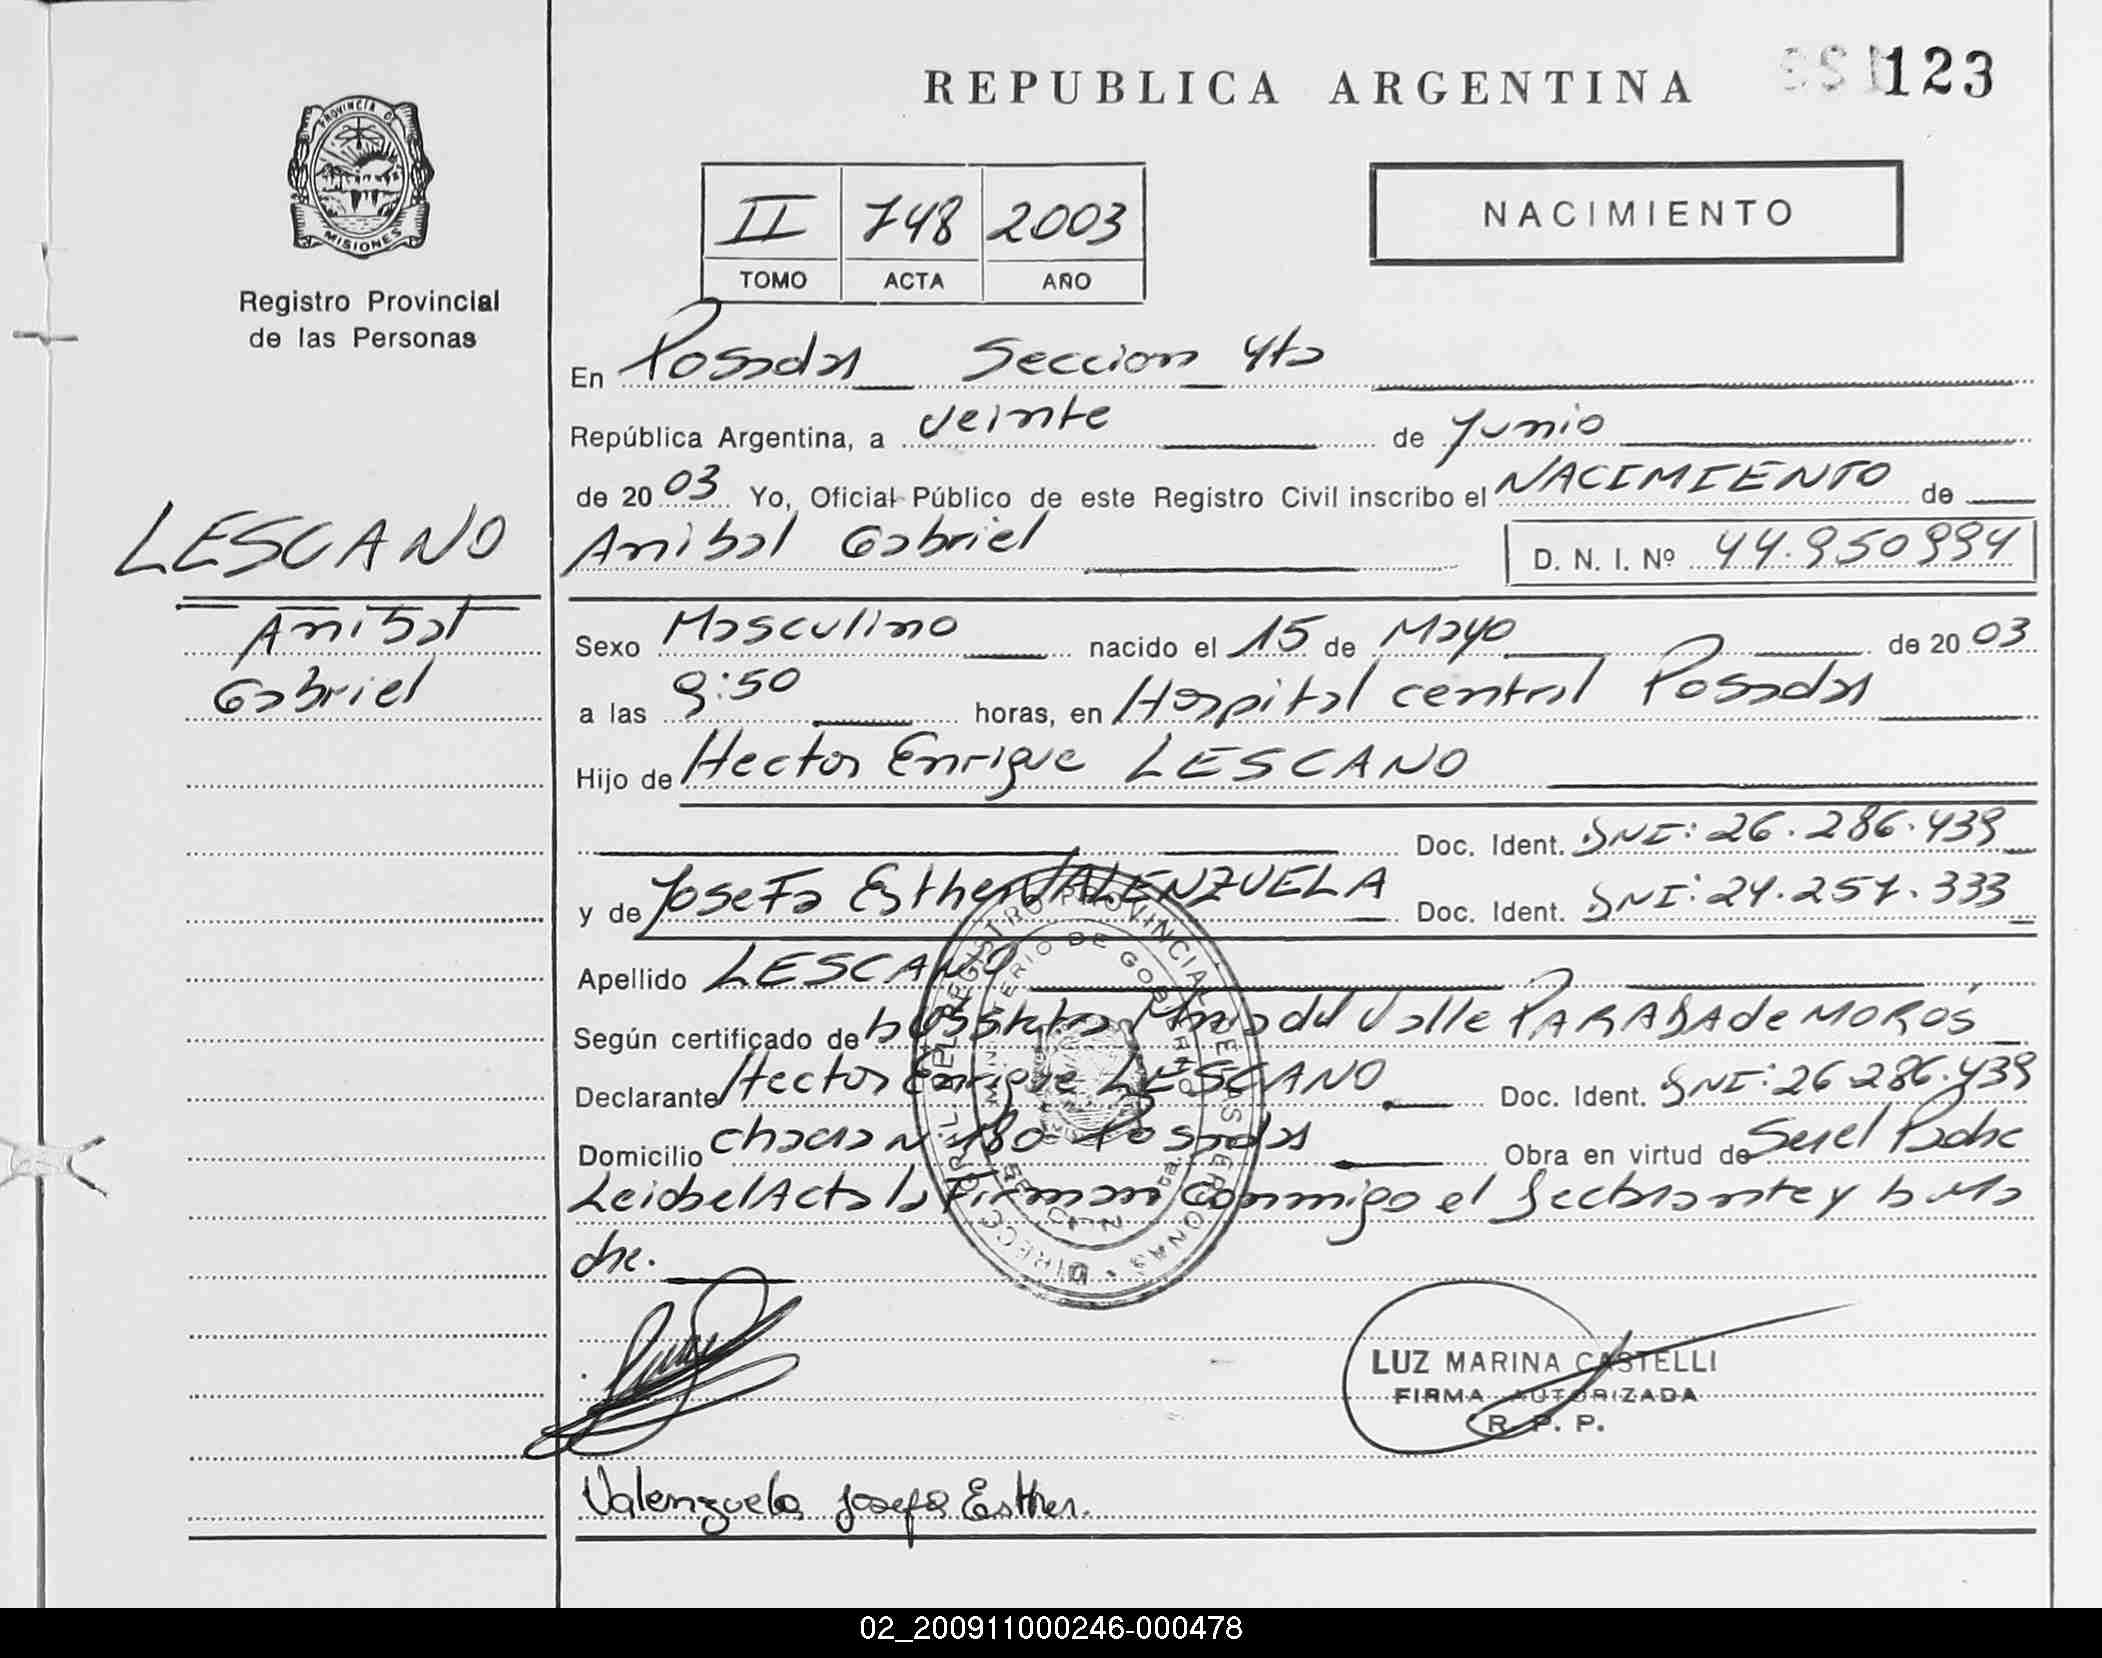 REPUBLICA ARGENTINA
123
PROVINCIA DE
MISIONES
Registro Provincial
de las Personas
II 748 2003
TOMO ACTA AÑO
NACIMIENTO
En Posadas Seccion 4ta
República Argentina, a veinte de Junio
de 2003 Yo, Oficial Público de este Registro Civil inscribo el NACIMIENTO de
LESCANO
Anibal Gabriel D. N. I. Nº 44.950994
Anibal
Gabriel
Sexo Masculino nacido el 15 de Mayo de 2003
a las 9:50 horas, en Hospital central Posadas
Hijo de Hector Enrique LESCANO
Doc. Ident. DNI: 26.286.439
y de Josefa Esther VALENZUELA Doc. Ident. DNI: 24.257.333
Apellido LESCANO
Según certificado de Maria del Valle PARADA de MOROS
Declarante Hector Enrique LESCANO. Doc. Ident. DNI: 26286.439
Domicilio 180 Posadas Obra en virtud de Ser el Padre
Leida el Acta la Firman Conmigo el Declarante y la Ma
dre.
LUZ MARINA CASTELLI
FIRMA AUTORIZADA
R. P. P.
Valenzuela Josefa Esther.
02_200911000246-000478